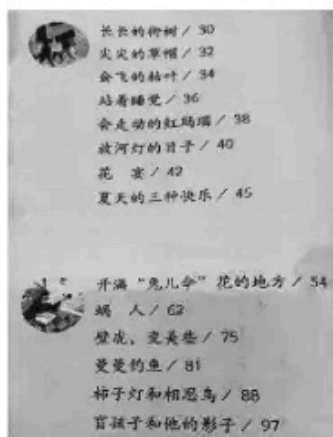 长长的街树 / 30
尖尖的草帽 / 32
会飞的枯叶 / 34
站着睡觉 / 36
会走动的红玛瑙 / 38
放河灯的日子 / 40
花 宴 / 42
夏天的三种快乐 / 45
开满“兔儿伞”花的地方 / 54
蜗 人 / 62
壁虎，变美些 / 75
曼曼钓鱼 / 81
柿子灯和相思鸟 / 88
盲孩子和他的影子 / 97